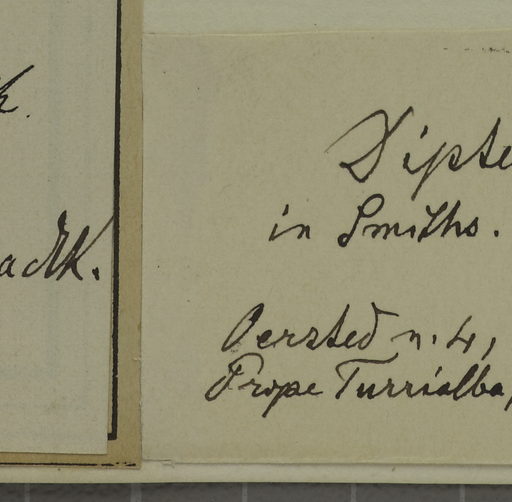 Dipte
in Smiths.
Oersted n. 4,
Prope Turrialba,